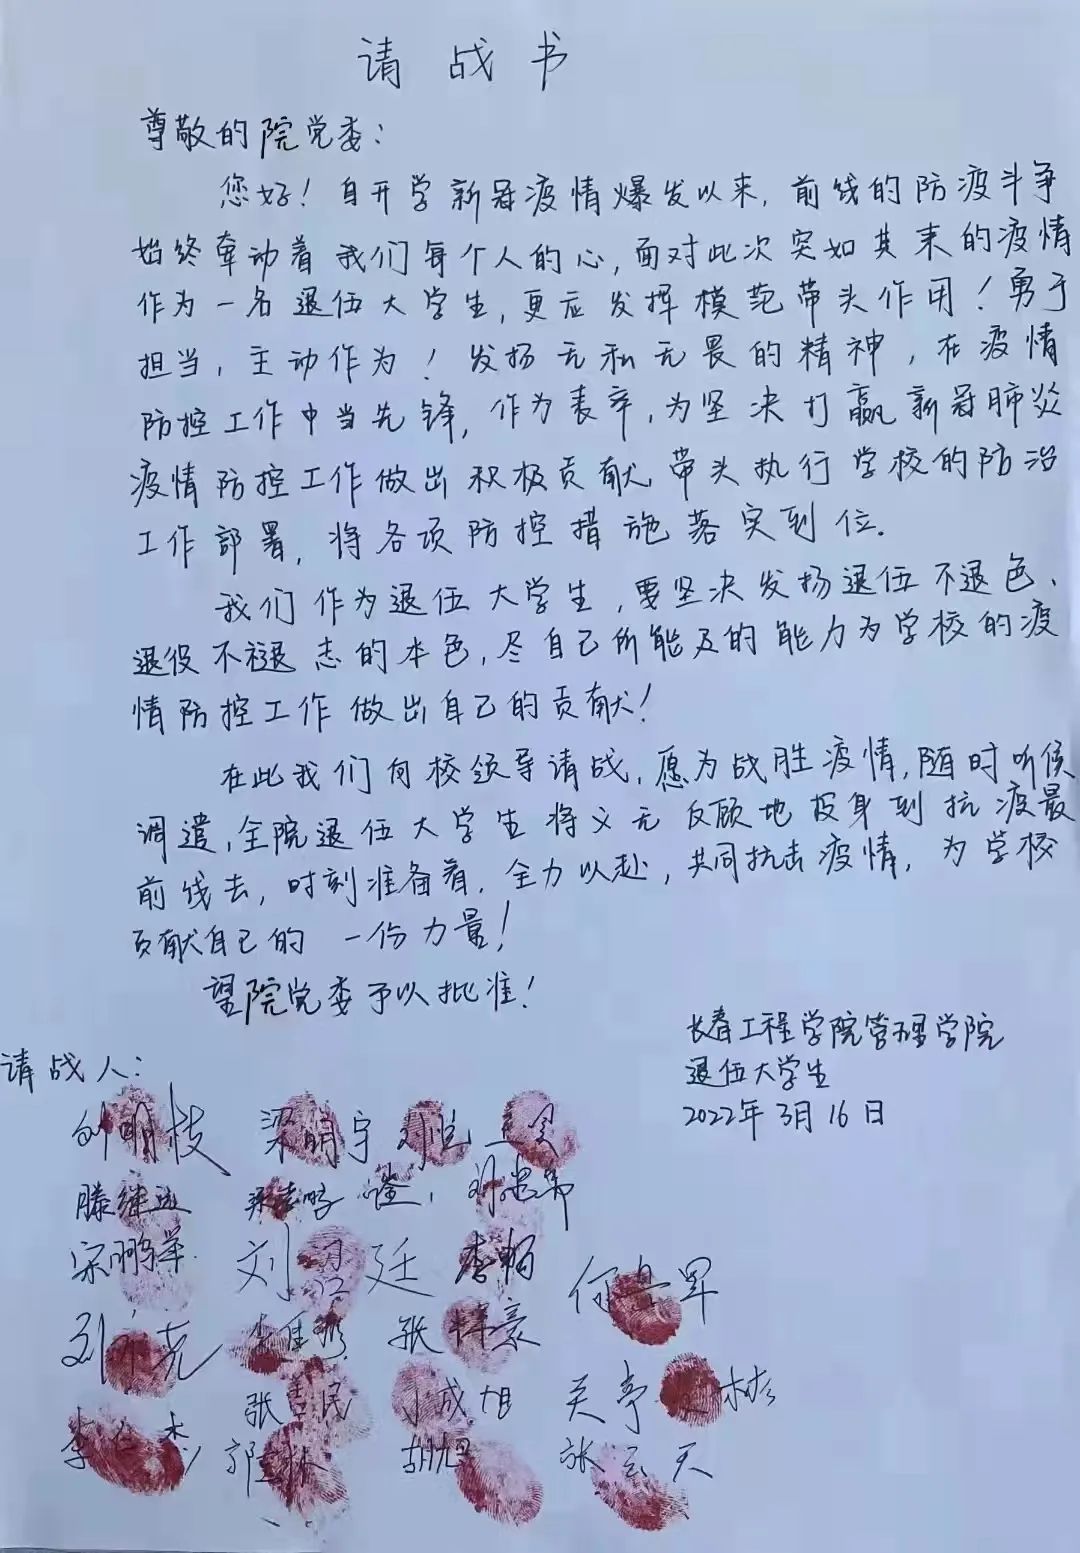 请战书
尊敬的院党委：
您好！自开学新冠疫情爆发以来，前线的防疫斗争
始终牵动着我们每个人的心，面对此次突如其来的疫情
作为一名退伍大学生，更应发挥模范带头作用！勇于
担当，主动作为！发扬无私无畏的精神，在疫情
防控工作中当先锋，作为表率，为坚决打赢新冠肺炎
疫情防控工作做出积极贡献，带头执行学校的防治
工作部署，将各项防控措施落实到位.
我们作为退伍大学生，要坚决发扬退伍不退色、
退役不褪志的本色，尽自己所能及的能力为学校的疫
情防控工作做出自己的贡献！
在此我们向校领导请战，愿为战胜疫情，随时听候
调遣，全院退伍大学生将义无反顾地投身到抗疫最
前线去，时刻准备着，全力以赴，共同抗击疫情，为学校
贡献自己的一份力量！
望院党委予以批准！
长春工程学院管理学院
退伍大学生
2022年3月16日
请战人：
梁明宇
宋鹏举
刘 廷 李畅
张 豪
张 民 成旭 关亭 彬
胡旭 张云天